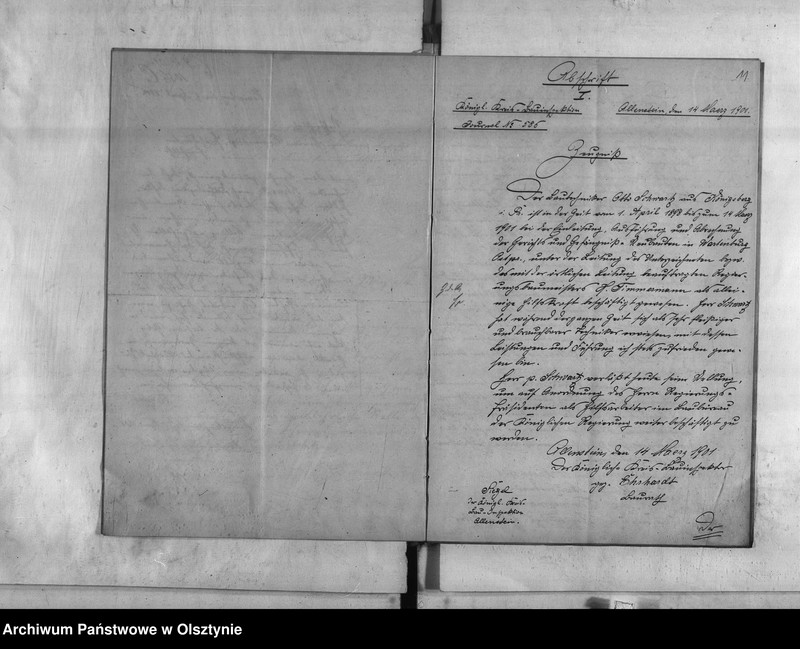 Abschrift
I.
11
Königl. Kreis-Bauinspektion
Allenstein, den 14 Maerz 1901.
Journal № 586
Zeugniß
Der Bautechniker Otto Schwartz aus Königsberg
i. P. ist in der Zeit vom 1. April 1898 bis zum 14 Maerz
1901 bei der Einleitung, Ausführung und Abrechnung
der Gerichts und Gefängniß-Neubauten in Wartenburg
Ostpr., unter der Leitung des Unterzeichneten bezw.
des mit der örtlichen Leitung beauftragten Regier-
ungsbaumeisters Timmermann als allei-
nige Hilfskraft beschäftigt gewesen. Herr Schwartz
hat während der ganzen Zeit sich als sehr fleißiger
und brauchbarer Techniker erwiesen, mit dessen
Leistungen und Führung ich stets zufrieden gewe-
sen bin.
Herr p. Schwartz verläßt heute seine Stellung,
um auf Anordnung des Herrn Regierungs-
Präsidenten als Hilfsarbeiter im Baubüreau
der Königlichen Regierung weiter beschäftigt zu
werden.
Allenstein, den 14 Maerz 1901
Der Königliche Kreis-Bauinspektor
gez. Ehrhardt
Baurath
Siegel
der Königl. Kreis-
Bau-Inspektion
Allenstein.
Archiwum Państwowe w Olsztynie